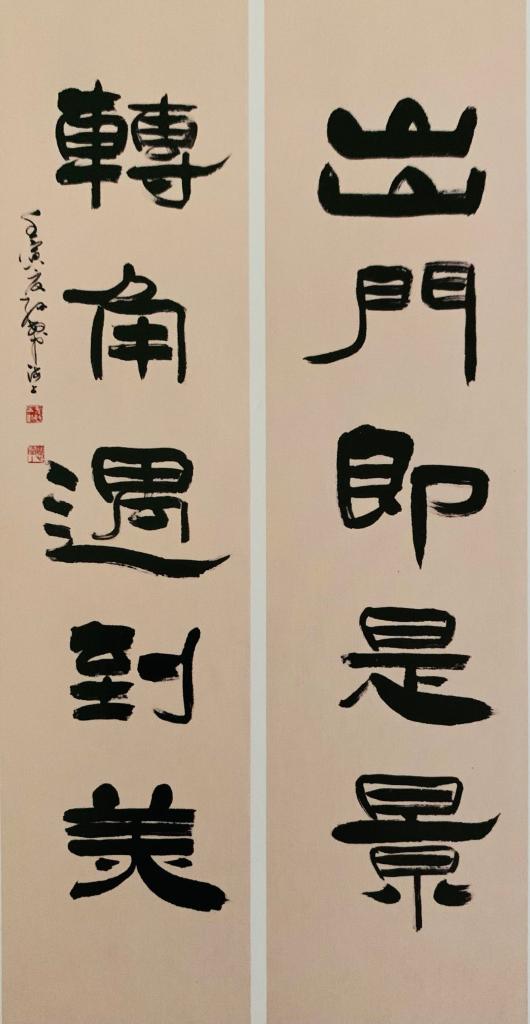 出門即是景
轉角遇到美
壬寅夏
海上